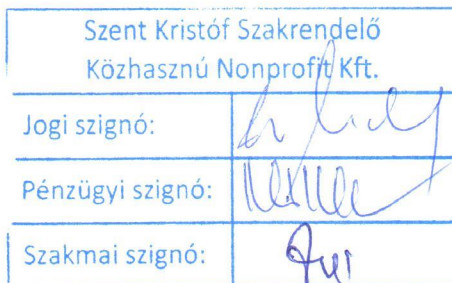 Szent Kristóf Szakrendelő
Közhasznú Nonprofit Kft.
Jogi szignó:
Pénzügyi szignó:
Szakmai szignó: